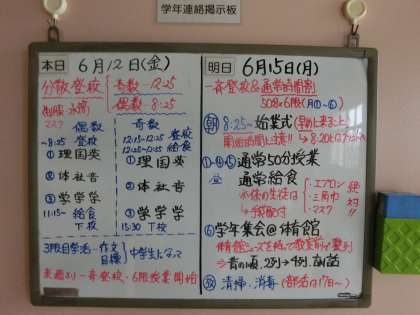 学年連絡掲示板
本日 6月12日(金)
分散登校
奇数 - 12:25
偶数 - 8:25
マスク
偶数
~8:25 登校
① 理国英
② 体社音
③ 学学学
11:15~ 給食
下校
奇数
12:15~12:25 登校
12:25~12:55 給食
① 理国英
② 体社音
③ 学学学
15:30 下校
3限目学活-作文
目標
中学生になって
来週より一斉登校・6限授業開始
明日 6月15日(月)
一斉登校&通常時間割
50分×6限(月①~⑥)
朝 8:25~ 始業式
①-④⑤ 通常50分授業
通常給食
・エプロン
・三角巾
・マスク
絶対!!
⑥ 学年集会@体育館
体育館シューズを持って教室前で整列
清掃・消毒 (部活は17日~)